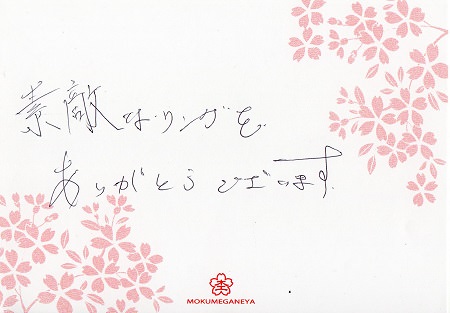 素敵なリングを
ありがとうございます
MOKUMEGANEYA